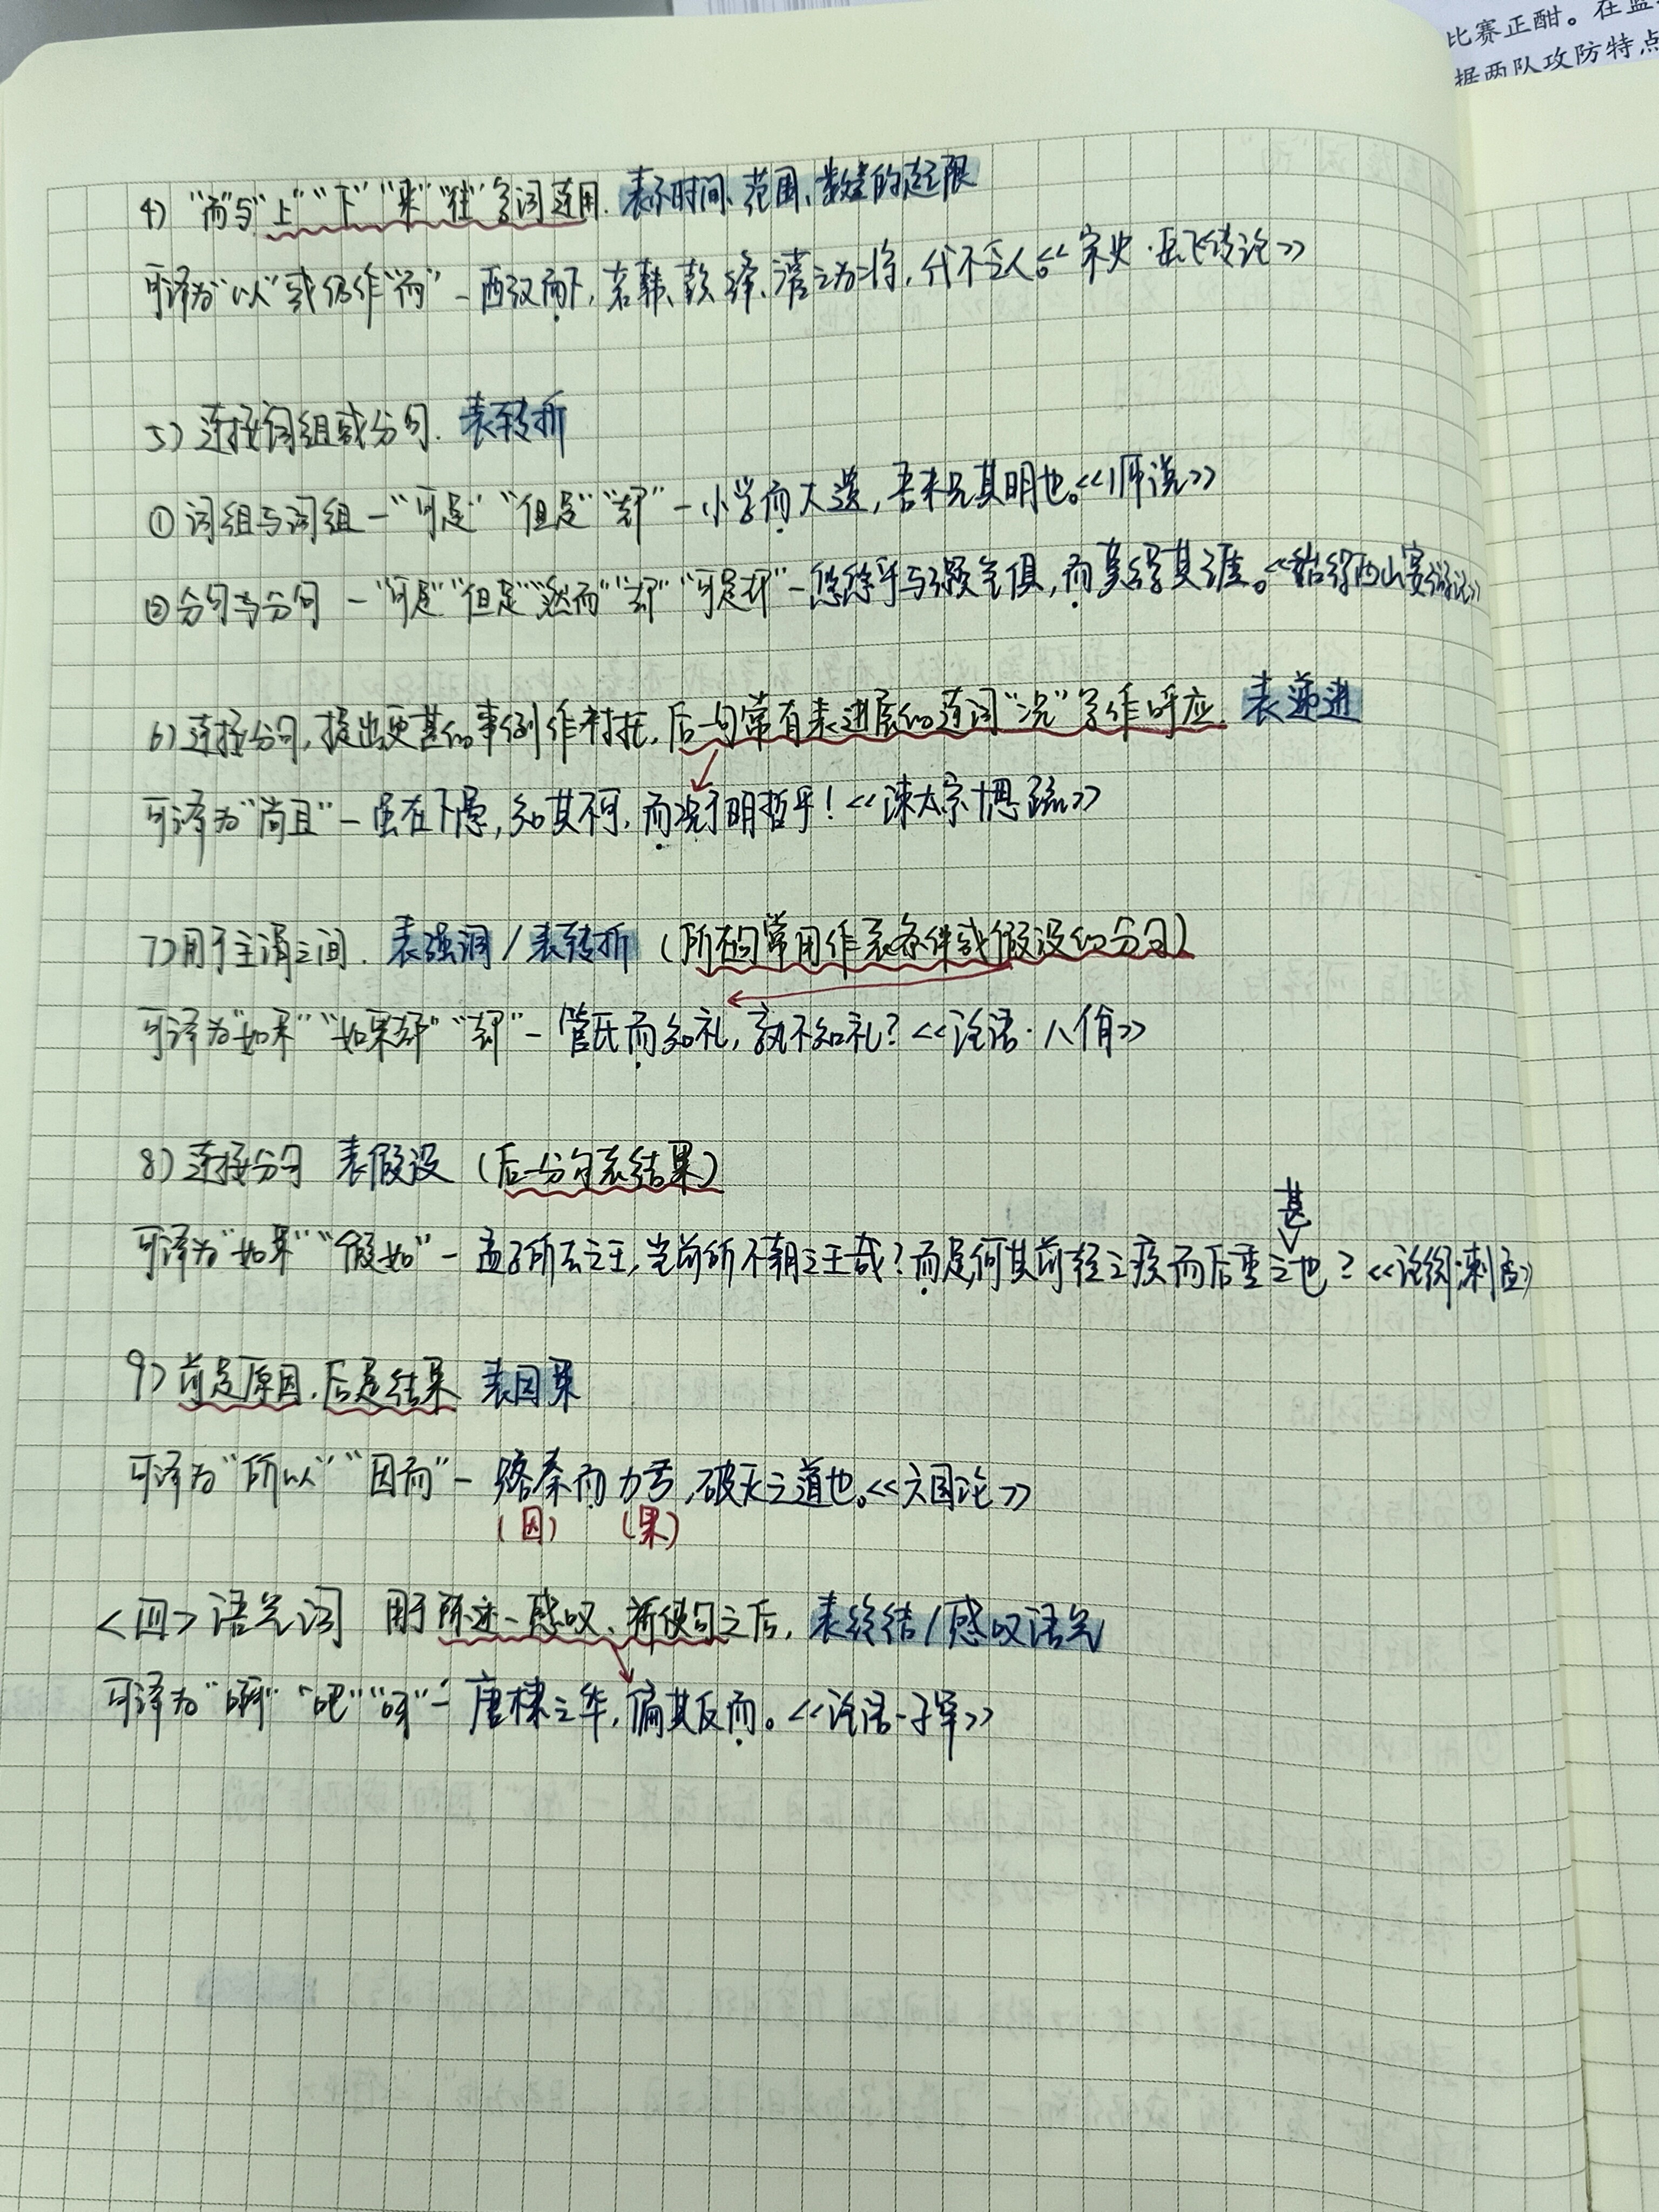 比赛正酣。在监
据两队攻防特点
4）“而”与“上”“下”“来”“往”等词连用. 表示时间、范围、数量的起限
可译为“以”或仍作“而”－西汉而下，若韩、彭、绛、灌之为将，代不乏人。《宋史·岳飞传论》
5）连接词组或分句. 表转折
①词组与词组－“可是”“但是”“却”－小学而大遗，吾未见其明也。《师说》
②分句与分句－“可是”“但是”“然而”“却”“可是却”－悠悠乎与颢气俱，而莫得其涯。《始得西山宴游记》
6）连接分句，提出更甚的事例作衬托，后一句常有表进层的连词“况”字作呼应. 表递进
可译为“尚且”－虽在下愚，知其不可，而况于明哲乎！《谏太宗十思疏》
7）用于主谓之间. 表强调/表转折（所在句常用作表条件或假设的分句）
可译为“如果”“如果却”“却”－管氏而知礼，孰不知礼？《论语·八佾》
8）连接分句 表假设（后一分句表结果）
甚
可译为“如果”“假如”－孟子所云之王，岂前所不朝之王哉？而是何其前轻之疾而后重之也？《论衡·刺孟》
9）前是原因，后是结果 表因果
可译为“所以”“因而”－赂秦而力亏，破灭之道也。《六国论》
（因） （果）
<四>语气词 用于陈述、感叹、祈使句之后，表终结/感叹语气
可译为“啊”“吧”“呀”－唐棣之华，偏其反而。《论语·子罕》